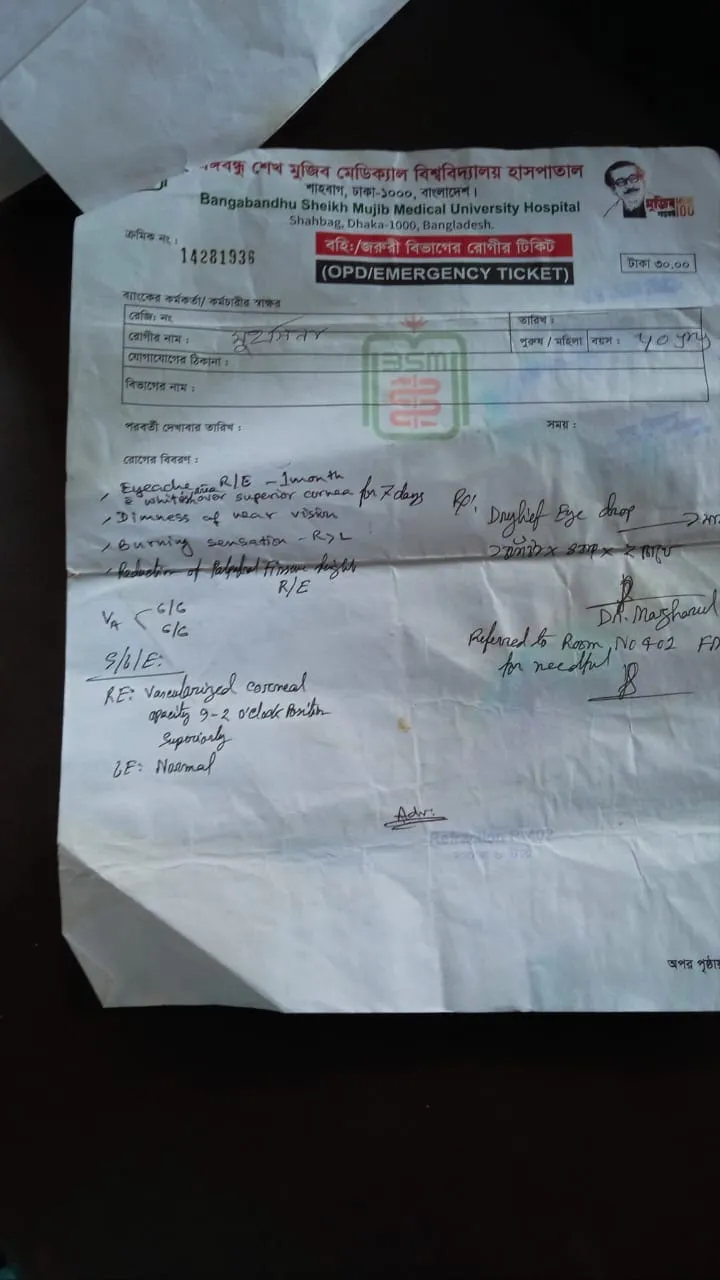 বন্ধু শেখ মুজিব মেডিক্যাল বিশ্ববিদ্যালয় হাসপাতাল
শাহবাগ, ঢাকা-১০০০, বাংলাদেশ।
Bangabandhu Sheikh Mujib Medical University Hospital
Shahbag, Dhaka-1000, Bangladesh.
মুজিব 100
ক্রমিক নং।
14281936
বহিঃ/জরুরী বিভাগের রোগীর টিকিট
(OPD/EMERGENCY TICKET)
টাকা ৩০.০০
ব্যাংকের কর্মকর্তা/ কর্মচারীর স্বাক্ষর
রেজিঃ নং
তারিখ :
রোগীর নাম :
পুরুষ / মহিলা বয়স : 40 yrs
যোগাযোগের ঠিকানা :
বিভাগের নাম :
পরবর্তী দেখাবার তারিখ :
সময় :
রোগের বিবরণ :
Eyeache R/E - 1 month
c whitish area over superior cornea for 7 days
Dimness of near vision
Burning sensation - R>L
Reduction of Palpebral Fissure height
R/E
VA 6/6
6/6
S/L/E:
RE: Vascularized corneal
opacity 9-2 O'clock Position
Superiorly
LE: Normal
Rp:
Drylief Eye drop
Dr. Mazharul
Referred to Room No 402
for needful
Adv:
অপর পৃষ্ঠায়